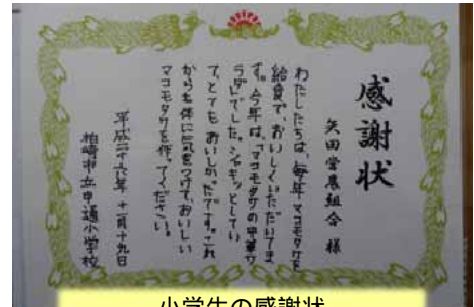 感謝状
矢田営農組合 様
わたしたちは、毎年マコモタケを
給食で、おいしくいただいてま
す。今年は、「マコモタケの中華サ
ラダ」でした。シャキッとしてい
て、とてもおいしかったです。これ
からも体に気をつけて、おいしい
マコモタケを作ってください。
平成二十六年 十一月十九日
柏崎市立中通小学校
小学生の感謝状